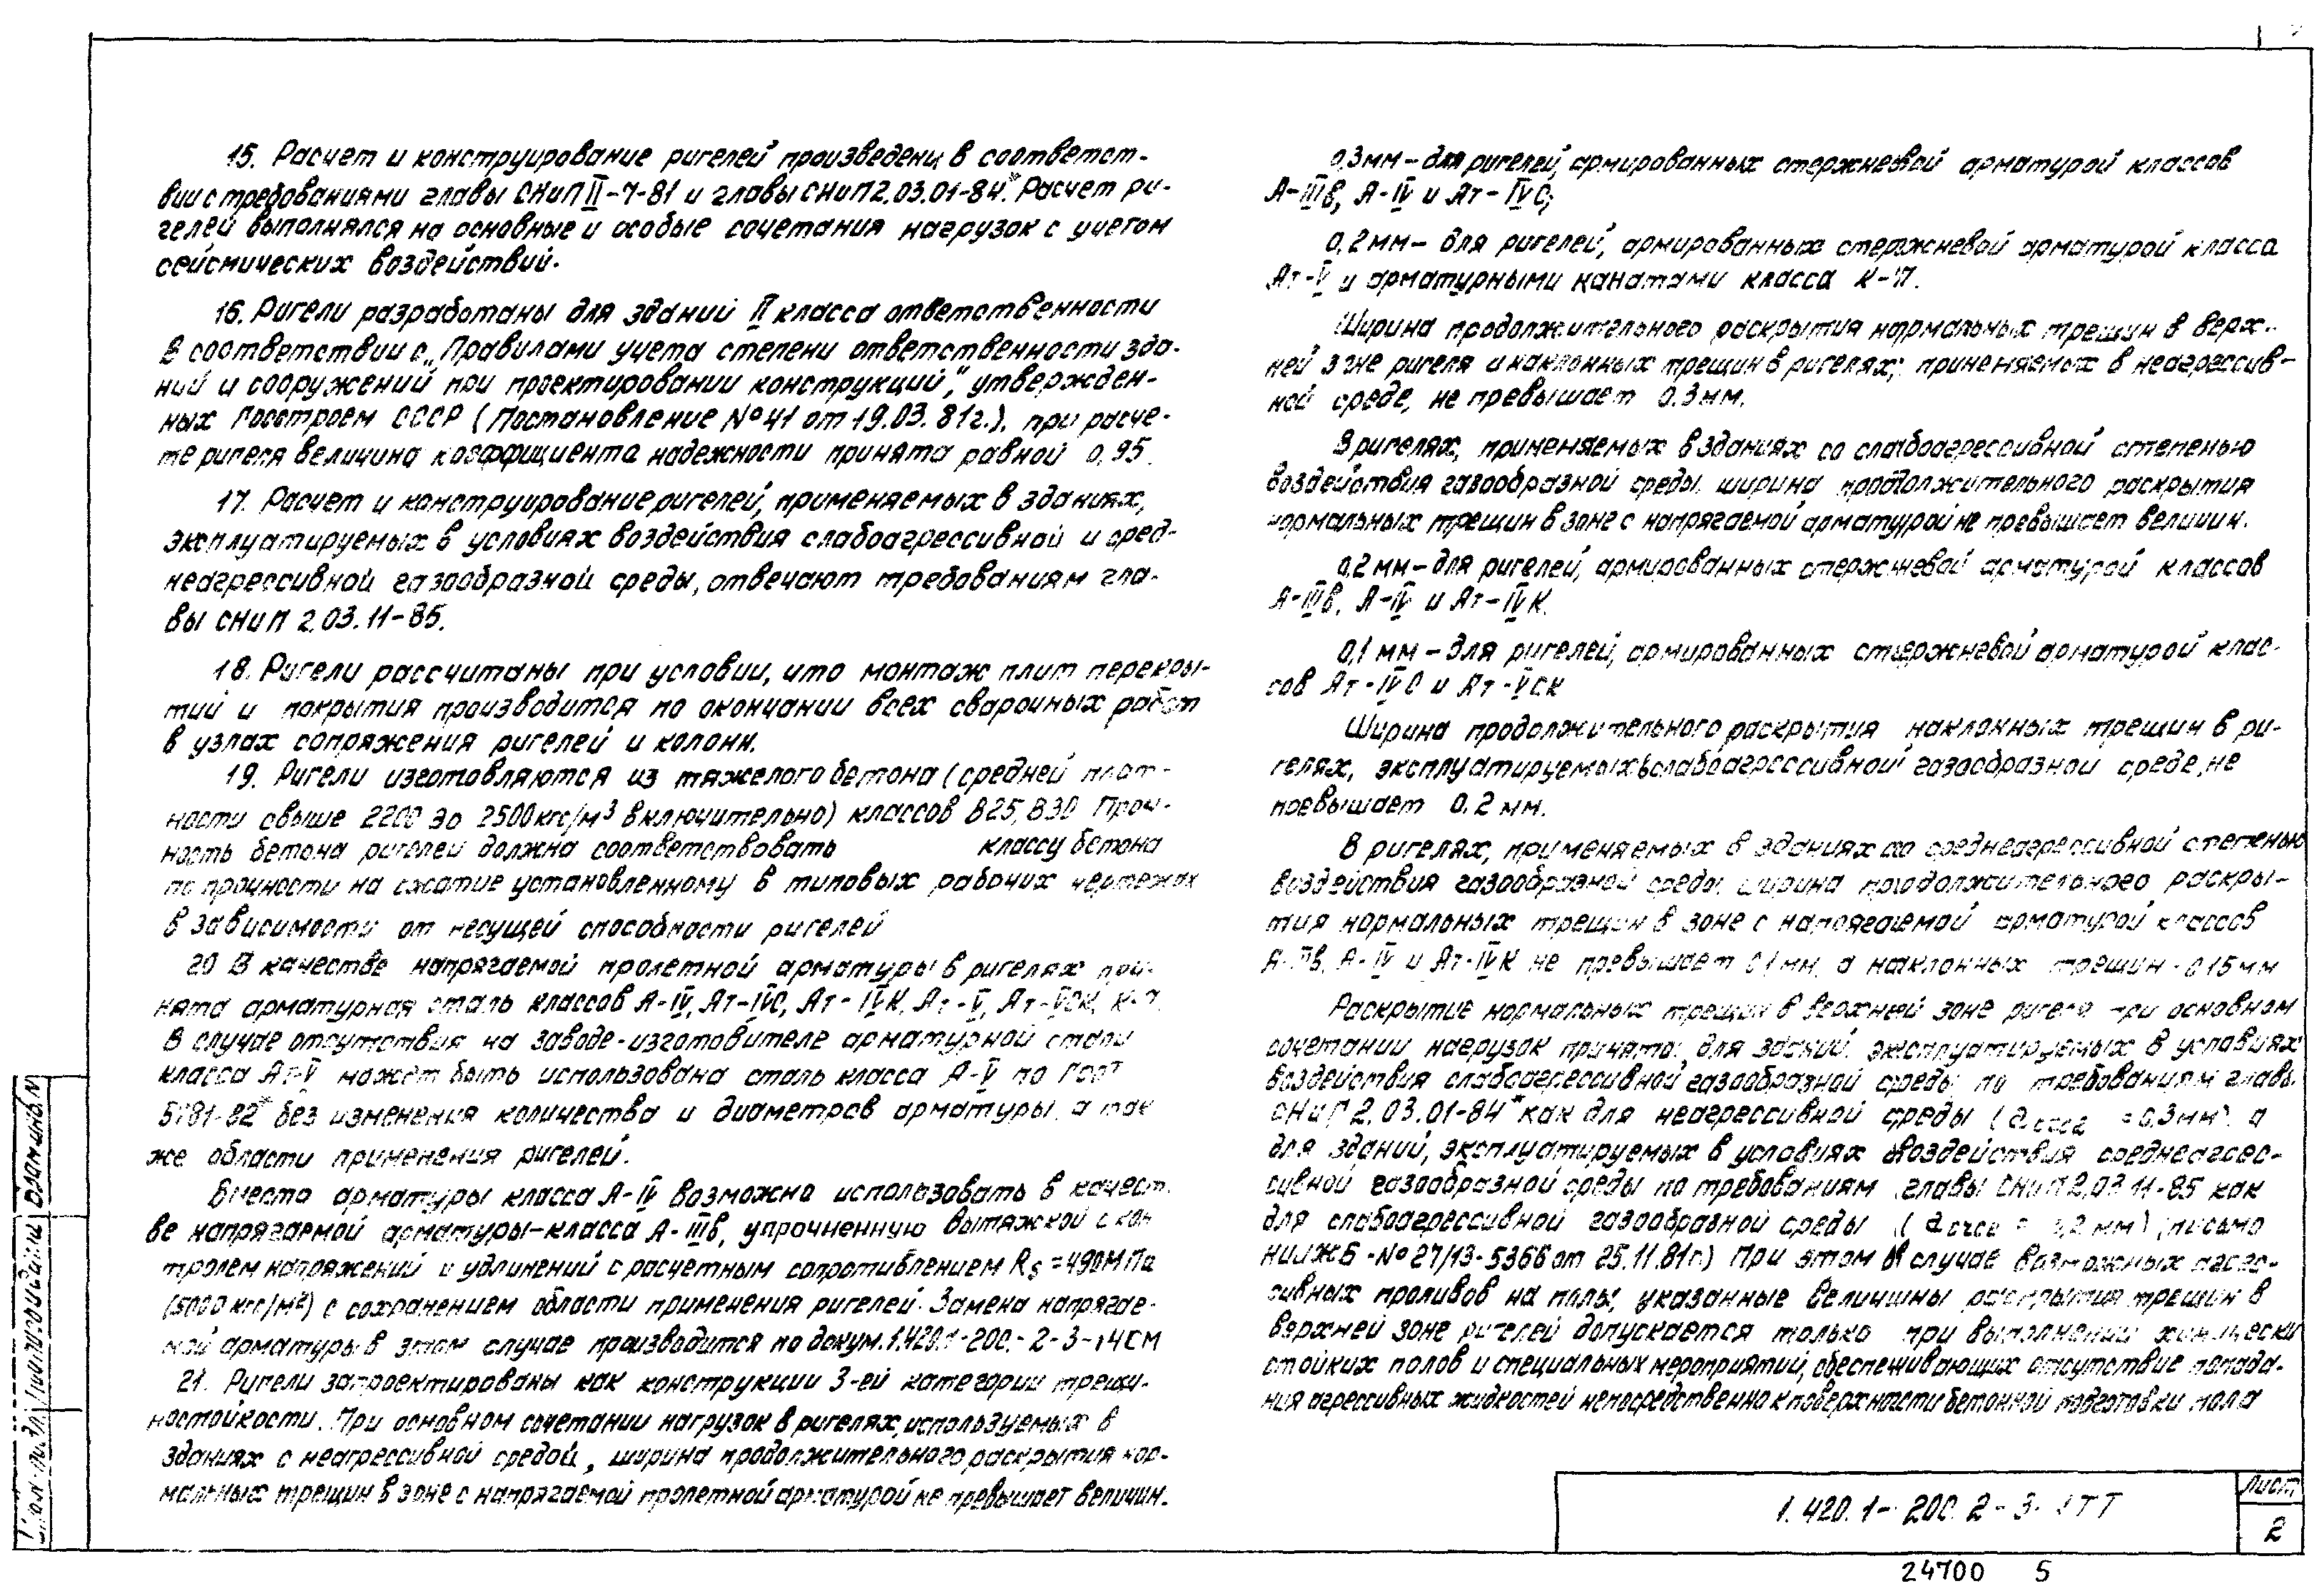 15. Расчет и конструирование ригелей произведены в соответст-
вии с требованиями главы СНиП II-7-81 и главы СНиП 2.03.01-84*. Расчет ри-
гелей выполнялся на основные и особые сочетания нагрузок с учетом
сейсмических воздействий.
16. Ригели разработаны для зданий II класса ответственности
в соответствии с „Правилами учета степени ответственности зда-
ний и сооружений при проектировании конструкций", утвержден-
ных Госстроем СССР (Постановление №41 от 19.03.81г.). При расче-
те ригеля величина коэффициента надежности принята равной 0,95.
17. Расчет и конструирование ригелей, применяемых в зданиях,
эксплуатируемых в условиях воздействия слабоагрессивной и сред-
неагрессивной газообразной среды, отвечают требованиям гла-
вы СНиП 2.03.11-85.
18. Ригели рассчитаны при условии, что монтаж плит перекры-
тий и покрытия производится по окончании всех сварочных работ
в узлах сопряжения ригелей и колонн.
19. Ригели изготовляются из тяжелого бетона (средней плот-
ности свыше 2200 до 2500 кгс/м³ включительно) классов В25, В30 Проч-
ность бетона ригелей должна соответствовать классу бетона
по прочности на сжатие установленному в типовых рабочих чертежах
в зависимости от несущей способности ригелей
20 В качестве напрягаемой пролетной арматуры в ригелях при-
нята арматурная сталь классов А-IV, Ат-IVС, Ат-IVК, Ат-V, Ат-VСК, К-7.
В случае отсутствия на заводе-изготовителе арматурной стали
класса Ат-V может быть использована сталь класса А-V по ГОСТ
5781-82* без изменения количества и диаметров арматуры, а так
же области применения ригелей.
Вместо арматуры класса А-IV возможно использовать в качест-
ве напрягаемой арматуры-класса А-IIIв, упрочненную вытяжкой с кон-
тролем напряжений и удлинений с расчетным сопротивлением Rs=490МПа
(5000 кгс/м²) с сохранением области применения ригелей. Замена напрягае-
мой арматуры в этом случае производится по докум. 1.420.1-20С.2-3-14СМ
21. Ригели запроектированы как конструкции 3-ей категории трещи-
ностойкости. При основном сочетании нагрузок в ригелях, используемых в
зданиях с неагрессивной средой, ширина продолжительного раскрытия нор-
мальных трещин в зоне с напрягаемой пролетной арматурой не превышает величин.
0,3мм-для ригелей, армированных стержневой арматурой классов
А-IIIв, А-IV и Ат-IVС;
0,2мм- для ригелей, армированных стержневой арматурой класса
Ат-V и арматурными канатами класса К-7.
Ширина продолжительного раскрытия нормальных трещин в верх-
ней зоне ригеля и наклонных трещин в ригелях, применяемых в неагрессив-
ной среде, не превышает 0.3мм.
В ригелях, применяемых в зданиях со слабоагрессивной степенью
воздействия газообразной среды, ширина продолжительного раскрытия
нормальных трещин в зоне с напрягаемой арматурой не превышает величин.
0,2мм-для ригелей, армированных стержневой арматурой классов
А-IIIв, А-IV и Ат-IVК.
0,1 мм-для ригелей, армированных стержневой арматурой клас-
сов Ат-IVС и Ат-VСК
Ширина продолжительного раскрытия наклонных трещин в ри-
гелях, эксплуатируемых в слабоагрессивной газообразной среде, не
превышает 0.2 мм.
В ригелях, применяемых в зданиях со среднеагрессивной степенью
воздействия газообразной среды, ширина продолжительного раскры-
тия нормальных трещин в зоне с напрягаемой арматурой классов
А-IIIв, А-IV и Ат-IVК не превышает 0.1мм, а наклонных трещин - 0.15мм
Раскрытие нормальных трещин в верхней зоне ригеля при основном
сочетании нагрузок принято: для зданий, эксплуатируемых в условиях
воздействия слабоагрессивной газообразной среды по требованиям главы
СНиП 2.03.01-84* как для неагрессивной среды (acrc2 =0,3мм), а
для зданий, эксплуатируемых в условиях воздействия среднеагрес-
сивной газообразной среды по требованиям главы СНиП 2.03.11-85 как
для слабоагрессивной газообразной среды (acrc2 = 0,2 мм) (письмо
НИИЖБ-№27/13-5366 от 25.11.81г.) При этом в случае возможных агрес-
сивных проливов на полы, указанные величины раскрытия трещин в
верхней зоне ригелей допускается только при выполнении химически
стойких полов и специальных мероприятий, обеспечивающих отсутствие попада-
ния агрессивных жидкостей непосредственно к поверхности бетонной подготовки пола
1.420.1-20С.2-3- ТТ
Лист
2
24700 5
Инв.№ подл. Подпись и дата Взам.инв.№